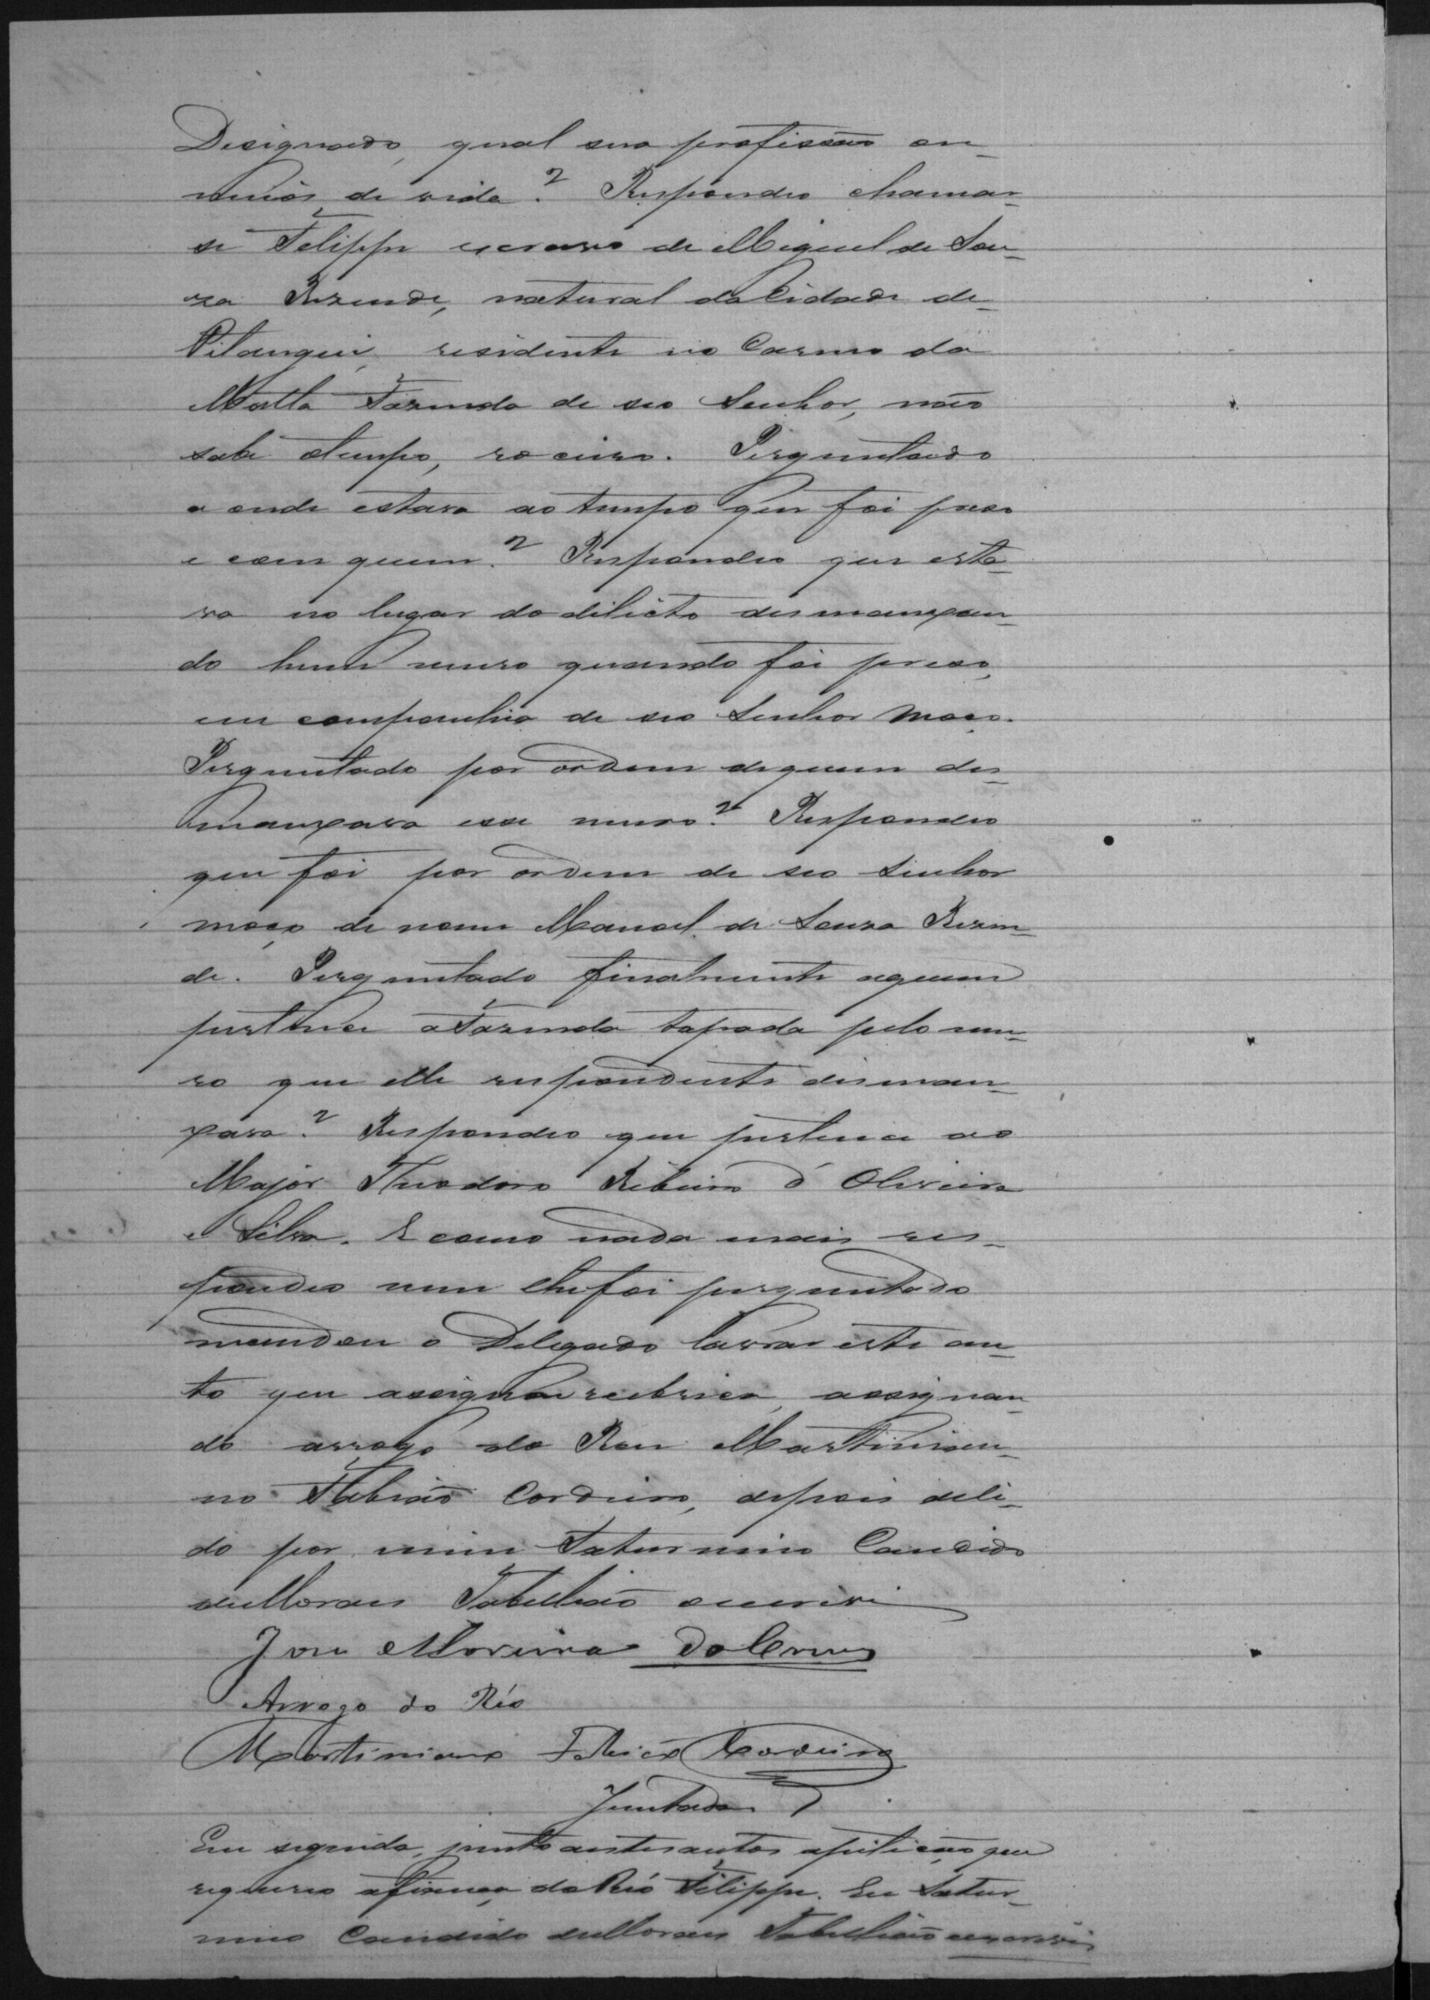 Designado, qual sua profissão ou
meios de vida? Respondeo chamar
se Felippe escravo de Miguel de Sou-
za Rezende, natural da Cidade de
Pitangui, residente no Carmo da
Matta Fazenda de seo Senhor, não
sabe otempo, roceiro. Perguntado
a onde estava ao tempo que foi preso
e com quem? Respondeo que esta-
va no lugar do dilicto desmanxan-
do hum muro quando foi preso,
em companhia de seo Senhor moço.
Perguntado por ordem dequem des-
manxava esse muro? Respondeo
que foi por ordem de seo Senhor
moço de nome Manoel de Souza Rezen-
de. Perguntado finalmente aquem
pertence aFazenda tapada pelo mu-
ro que elle respondente desman-
xava? Respondeo que pertence ao
Major Theodoro Ribeiro d' Oliveira
e Silva. E como nada mais res-
pondeo nem lhefoi perguntado
mandou o Delegado lavrar este au-
to que assigna erubrica, assignan-
do arrogo do Reu Martinian-
no Fabião Cordeiro, depois deli-
do por mim Saturnino Candido
deMoraes Tabellião oescrivi
José Moreira da Cruz
Arrogo do Réo
Martiniano Fabião Cordeiro
Juntada
Em seguida, junto aestesautos apetição que
requereo afiança do Réo Felippe. Eu Satur-
nino Candido deMoraes Tabellião oescrivi